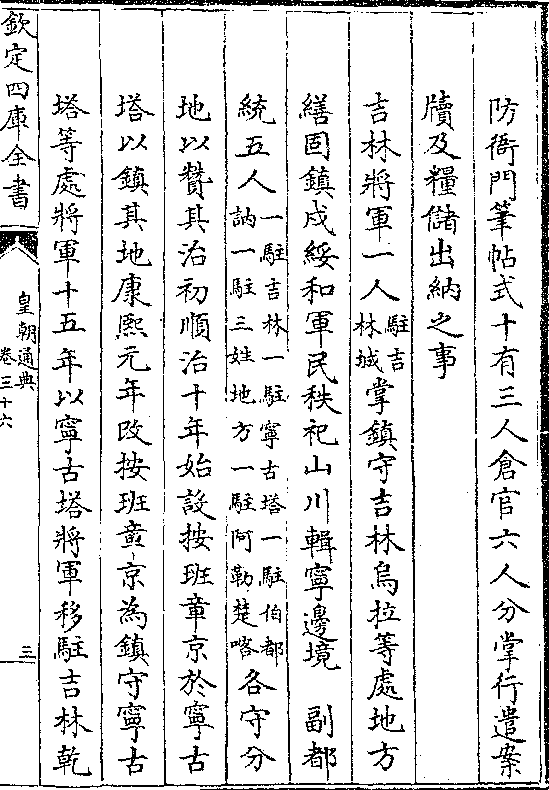 防衙門筆帖式十有三人倉官六人分掌行遣案
牘及糧儲出納之事
吉林將軍一人駐吉林城掌鎮守吉林烏拉等處地方
繕固鎮戍綏和軍民秩祀山川輯寧邊境　副都
統五人一駐吉林一駐寧古塔一駐伯都訥一駐三姓地方一駐阿勒楚喀各守分
地以贊其治初順治十年始設按班章京於寧古
塔以鎮其地康熙元年改按班章京為鎮守寧古
塔等處將軍十五年以寧古塔將軍移駐吉林乾
欽定四庫全書
皇朝通典
卷三十六
三